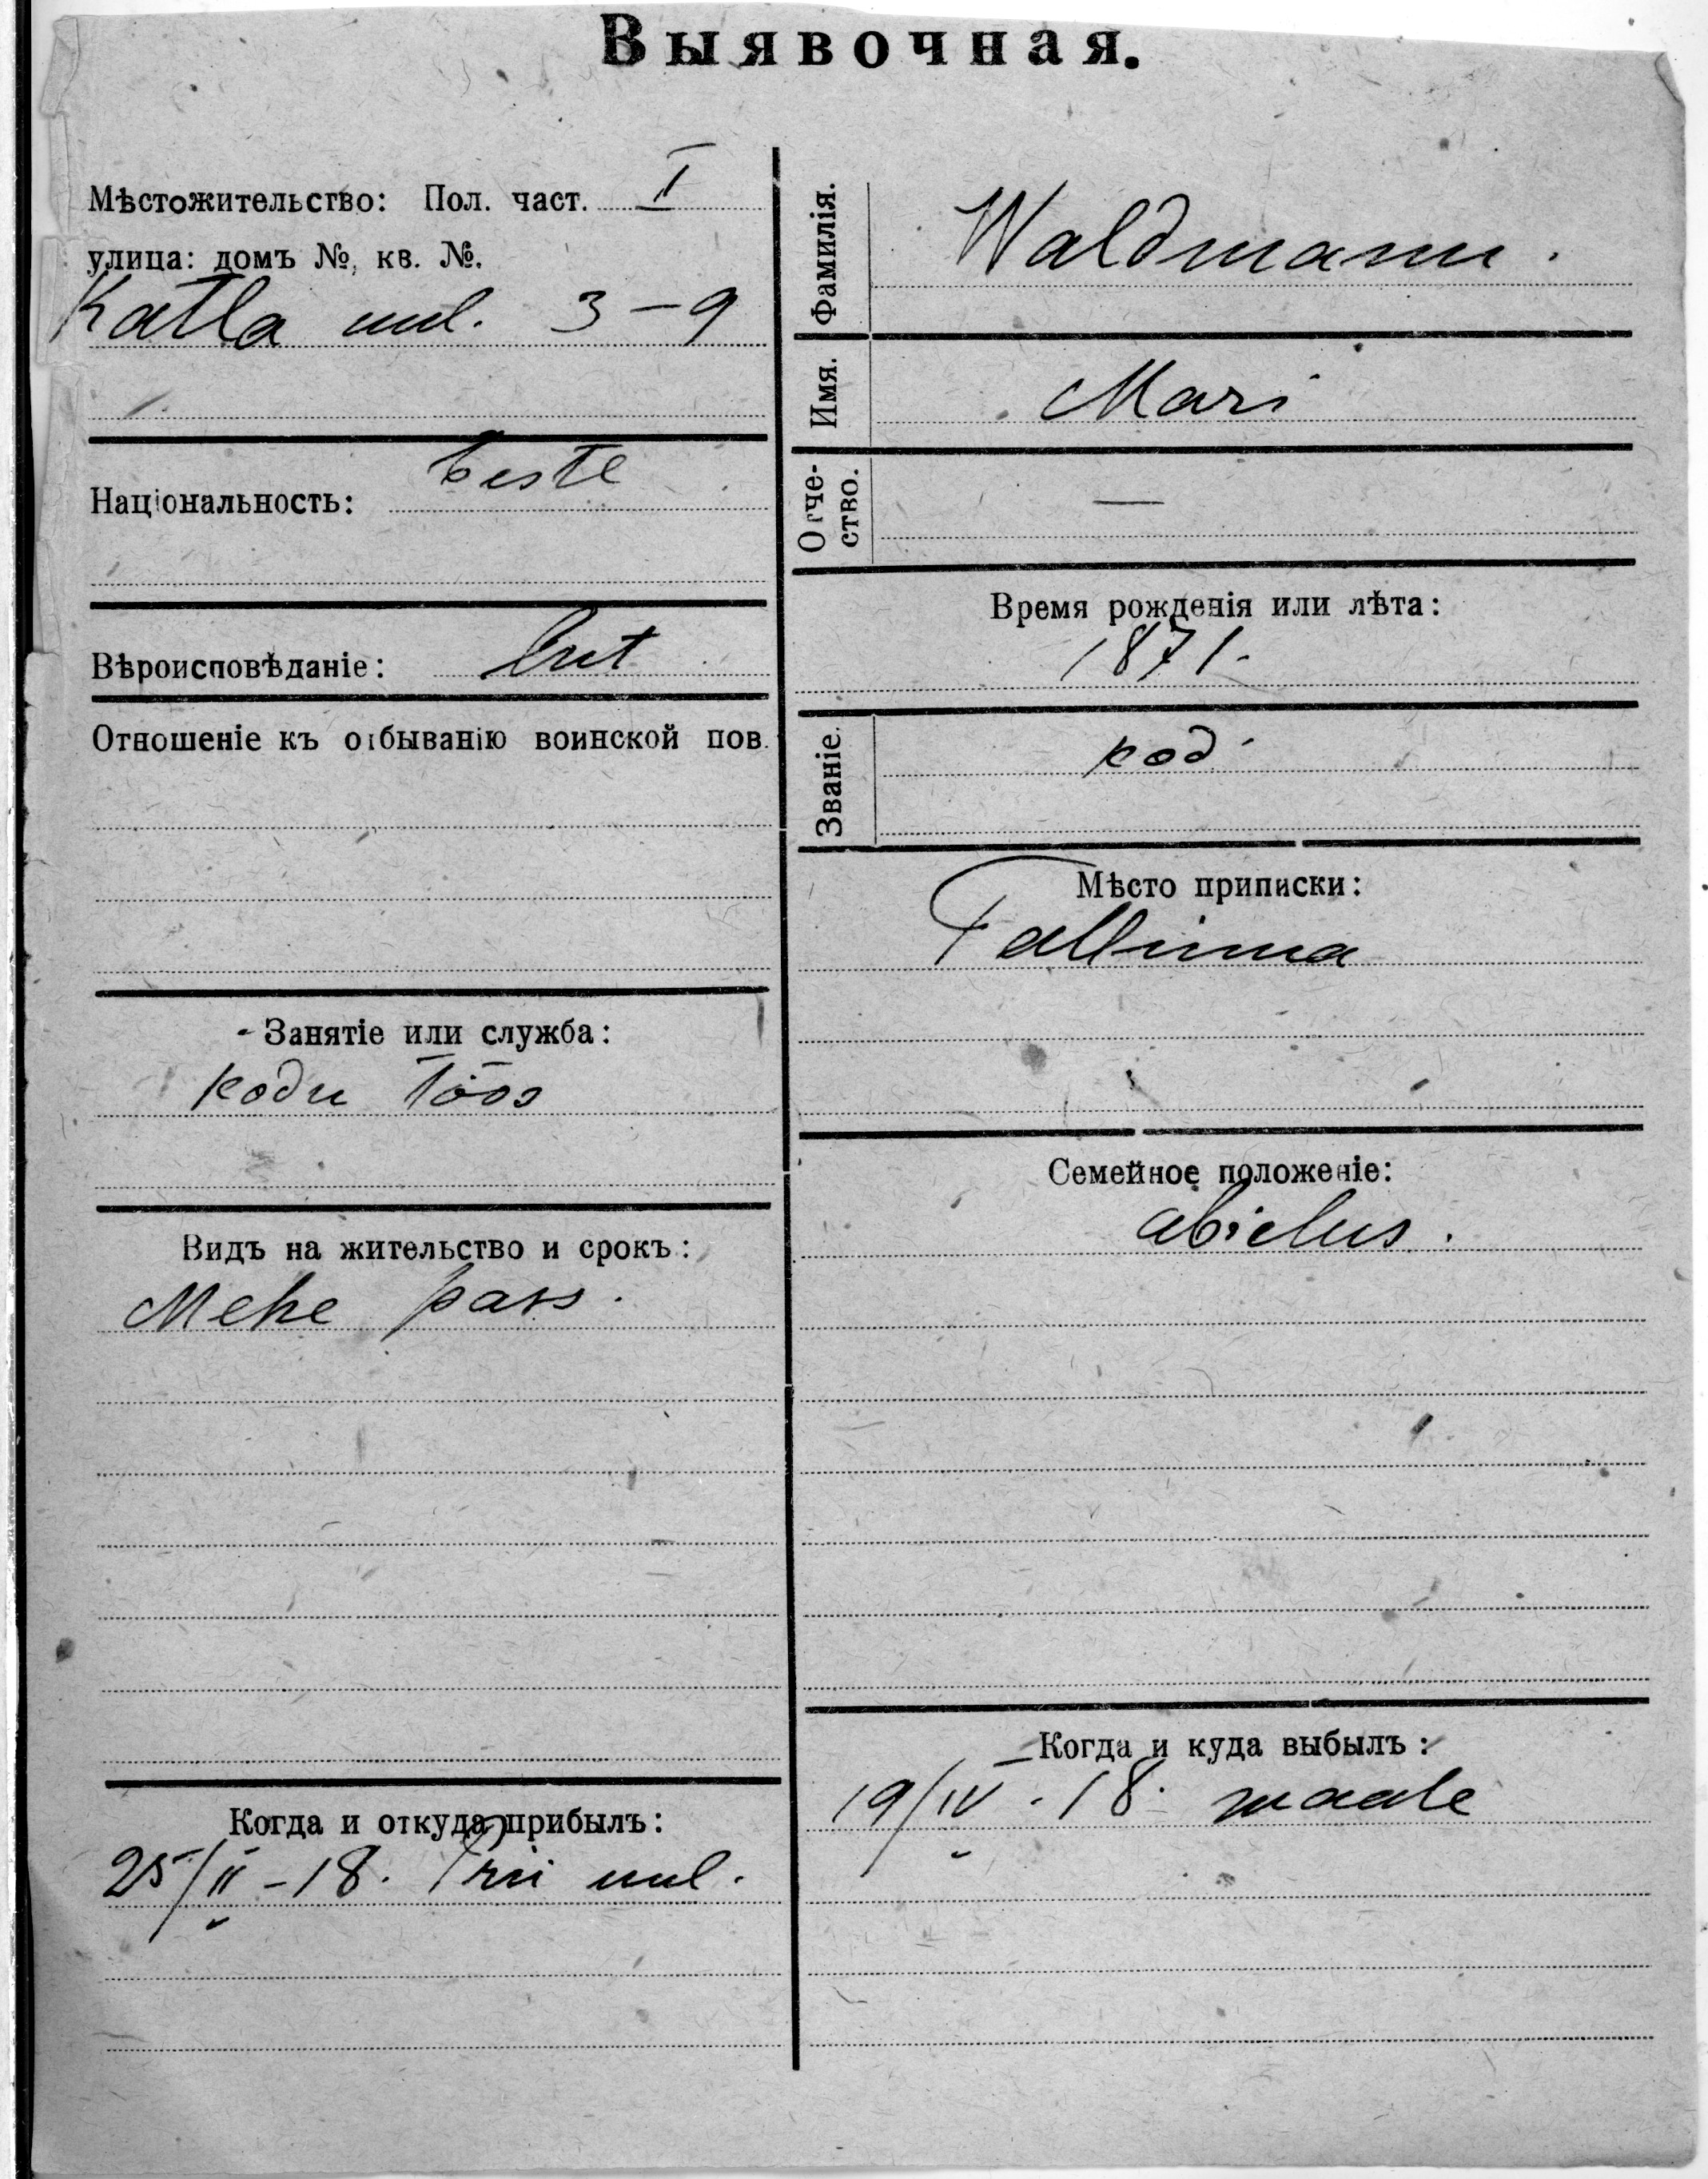 Выявочная.
Мѣстожительство: Пол. част. I
улица: домъ №, кв. №.
Katla uul. 3-9
Національность: Eeste
Вѣроисповѣданіе: lut
Отношеніе къ отбыванію воинской пов.
Занятіе или служба:
kodu töös
Видъ на жительство и срокъ:
Mehe pass.
Когда и откуда прибылъ:
25/II-18. Prii uul.
Фамилія. Waldmann.
Имя. Mari
Отче-
ство. —
Время рожденія или лѣта:
1871.
Званіе. kod.
Мѣсто приписки:
Tallinna
Семейное положеніе:
abielus.
Когда и куда выбылъ:
19/IV.18. maale